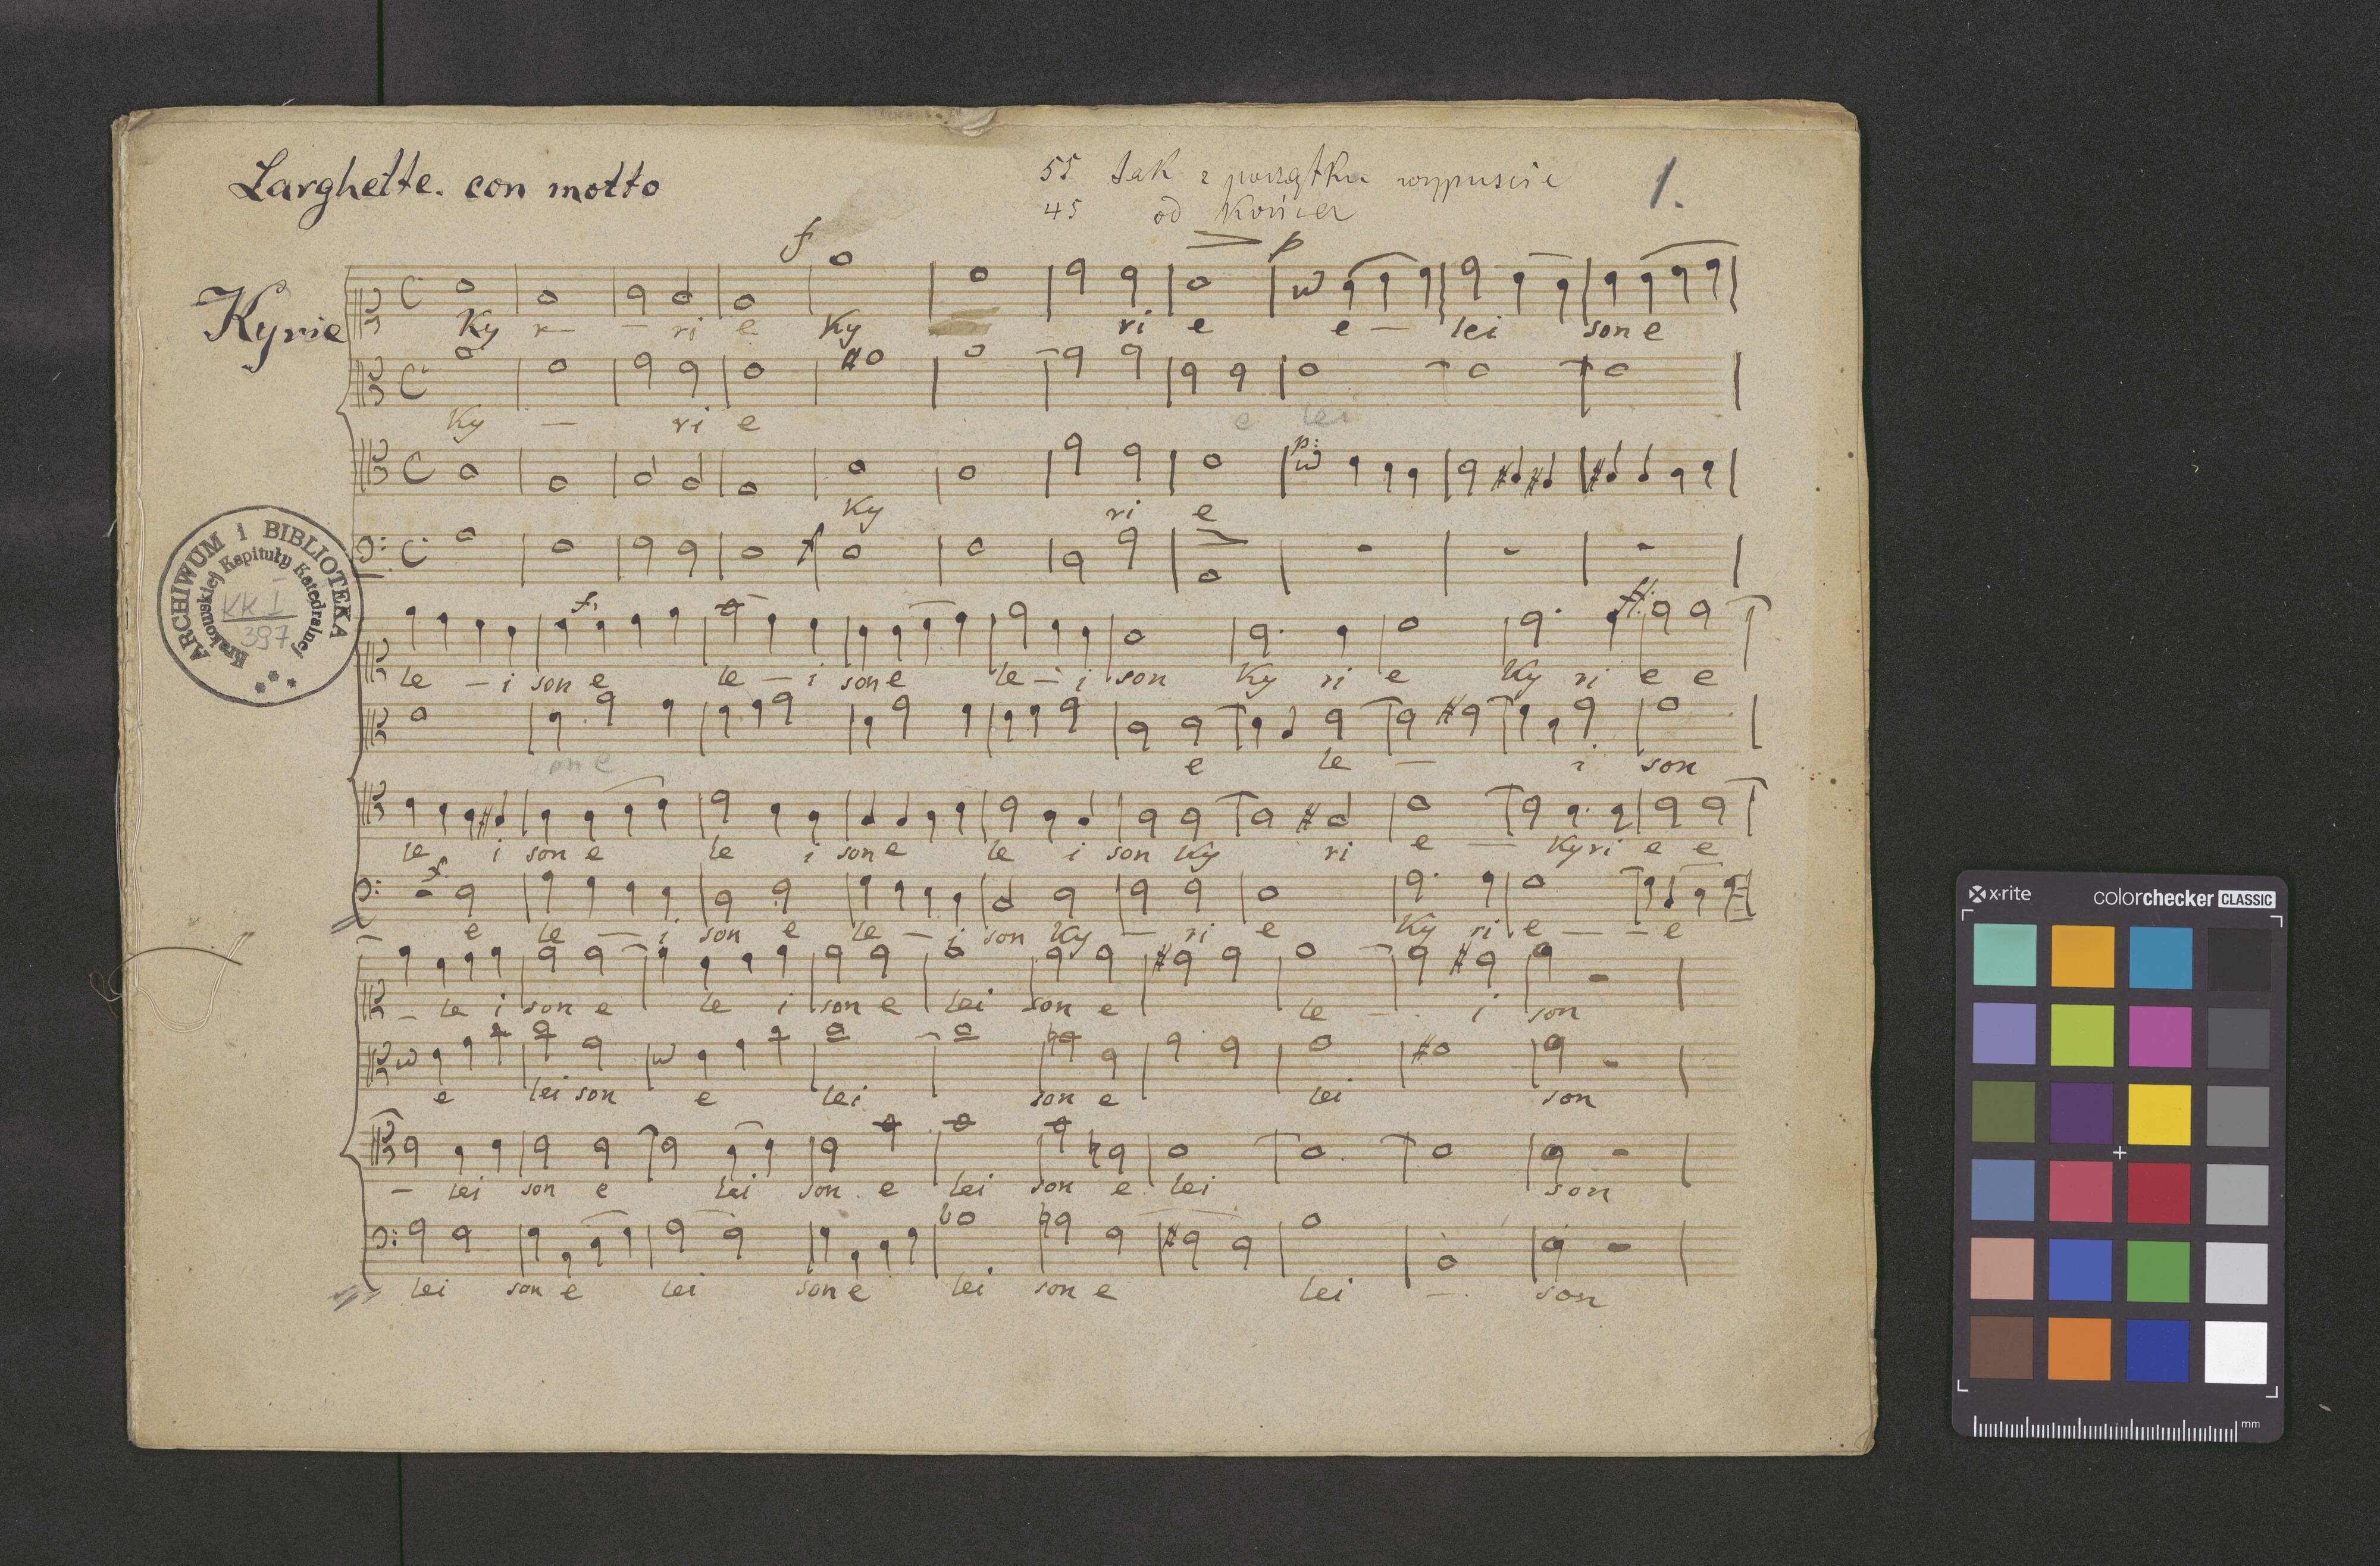 Larghette. con motto
55 Tak z początku wypuscic
45 od Końca
1.
f
p
Kyrie
Ky r — — ri e Ky ri e e — lei son e
Ky — ri e e lei
p:
Ky ri e
f
f: ff:
le — i son e le — i son e le — i son Ky ri e Ky ri e e
on e e le — i son
le i son e le i son e le i son Ky ri e — Ky ri e e
f
e le — i son e le — i son Ky — ri e Ky ri e — — e
— le i son e le i son e lei son e le — i son
e lei son e lei son e lei son
— lei son e lei son e lei son e lei son
lei son e lei son e lei son e lei — son
ARCHIWUM i BIBLIOTEKA
Krakowskiej Kapituły Katedralnej
KK I
397
x·rite colorchecker CLASSIC
mm